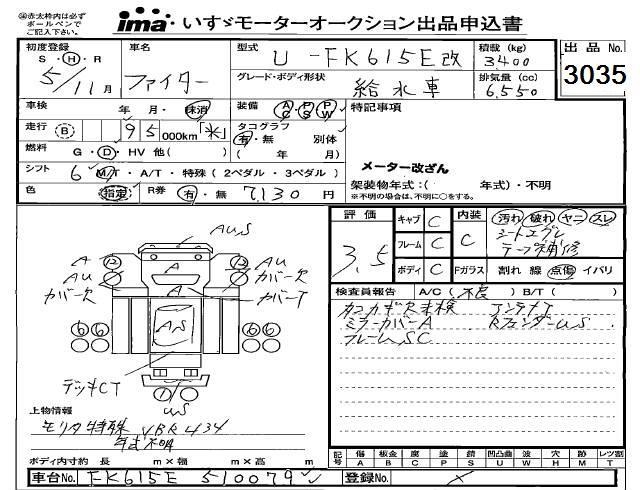 ㊟赤太枠内は必ずボールペンでご記入下さい。
ima いすゞモーターオークション出品申込書
初度登録 S・H・R 5/11月
車名 ファイター
型式 U-FK615E改
積載(kg) 3400
出品No. 3035
グレード・ボディ形状 給水車
排気量(cc) 6,550
車検 年 月・抹消
装備 AC PS PW
特記事項
走行 (B) 95 000km「*」
タコグラフ 有・無 別体
( 年 月)
燃料 G・D・HV 他( )
メーター改ざん
シフト 6 M/T・A/T・特殊(2ペダル・3ペダル)
架装物年式:( 年式)・不明
※不明の場合は、不明に○をする。
色 指定 R券 有・無 7,130 円
評価 3.5
キャブ C
フレーム C
ボディ C
内装 C
汚れ 破れ ヤニ スレ
シートコゲ
テープ補修
Fガラス 割れ 線 点傷 イバリ
検査員報告 A/C(不良) B/T( )
タコカギ欠未検 アンテナT
ミラーカバーA RフェンダーUS
フレームSC
AUS
AU
AU
カバー欠
A
A
AU
AU
カバーT
AS
⑥⑥
⑥⑥
デッキCT
US
上物情報
モリタ特殊 VBR434
年式不明
ボディ内寸約 長 m×幅 m×高 m
記号 傷A 板金B 腐C 塗P 錆S 凹凸曲U 波W 穴H 跡M レツ割T
車台No. FK615E-510079
登録No.